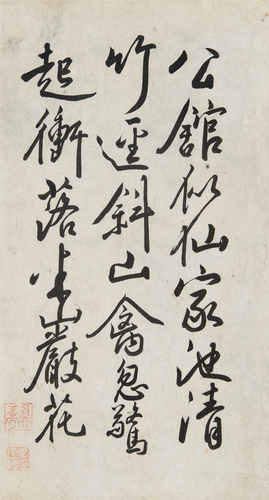 公館似仙家池清
竹逕斜山禽忽驚
起衝落半巖花